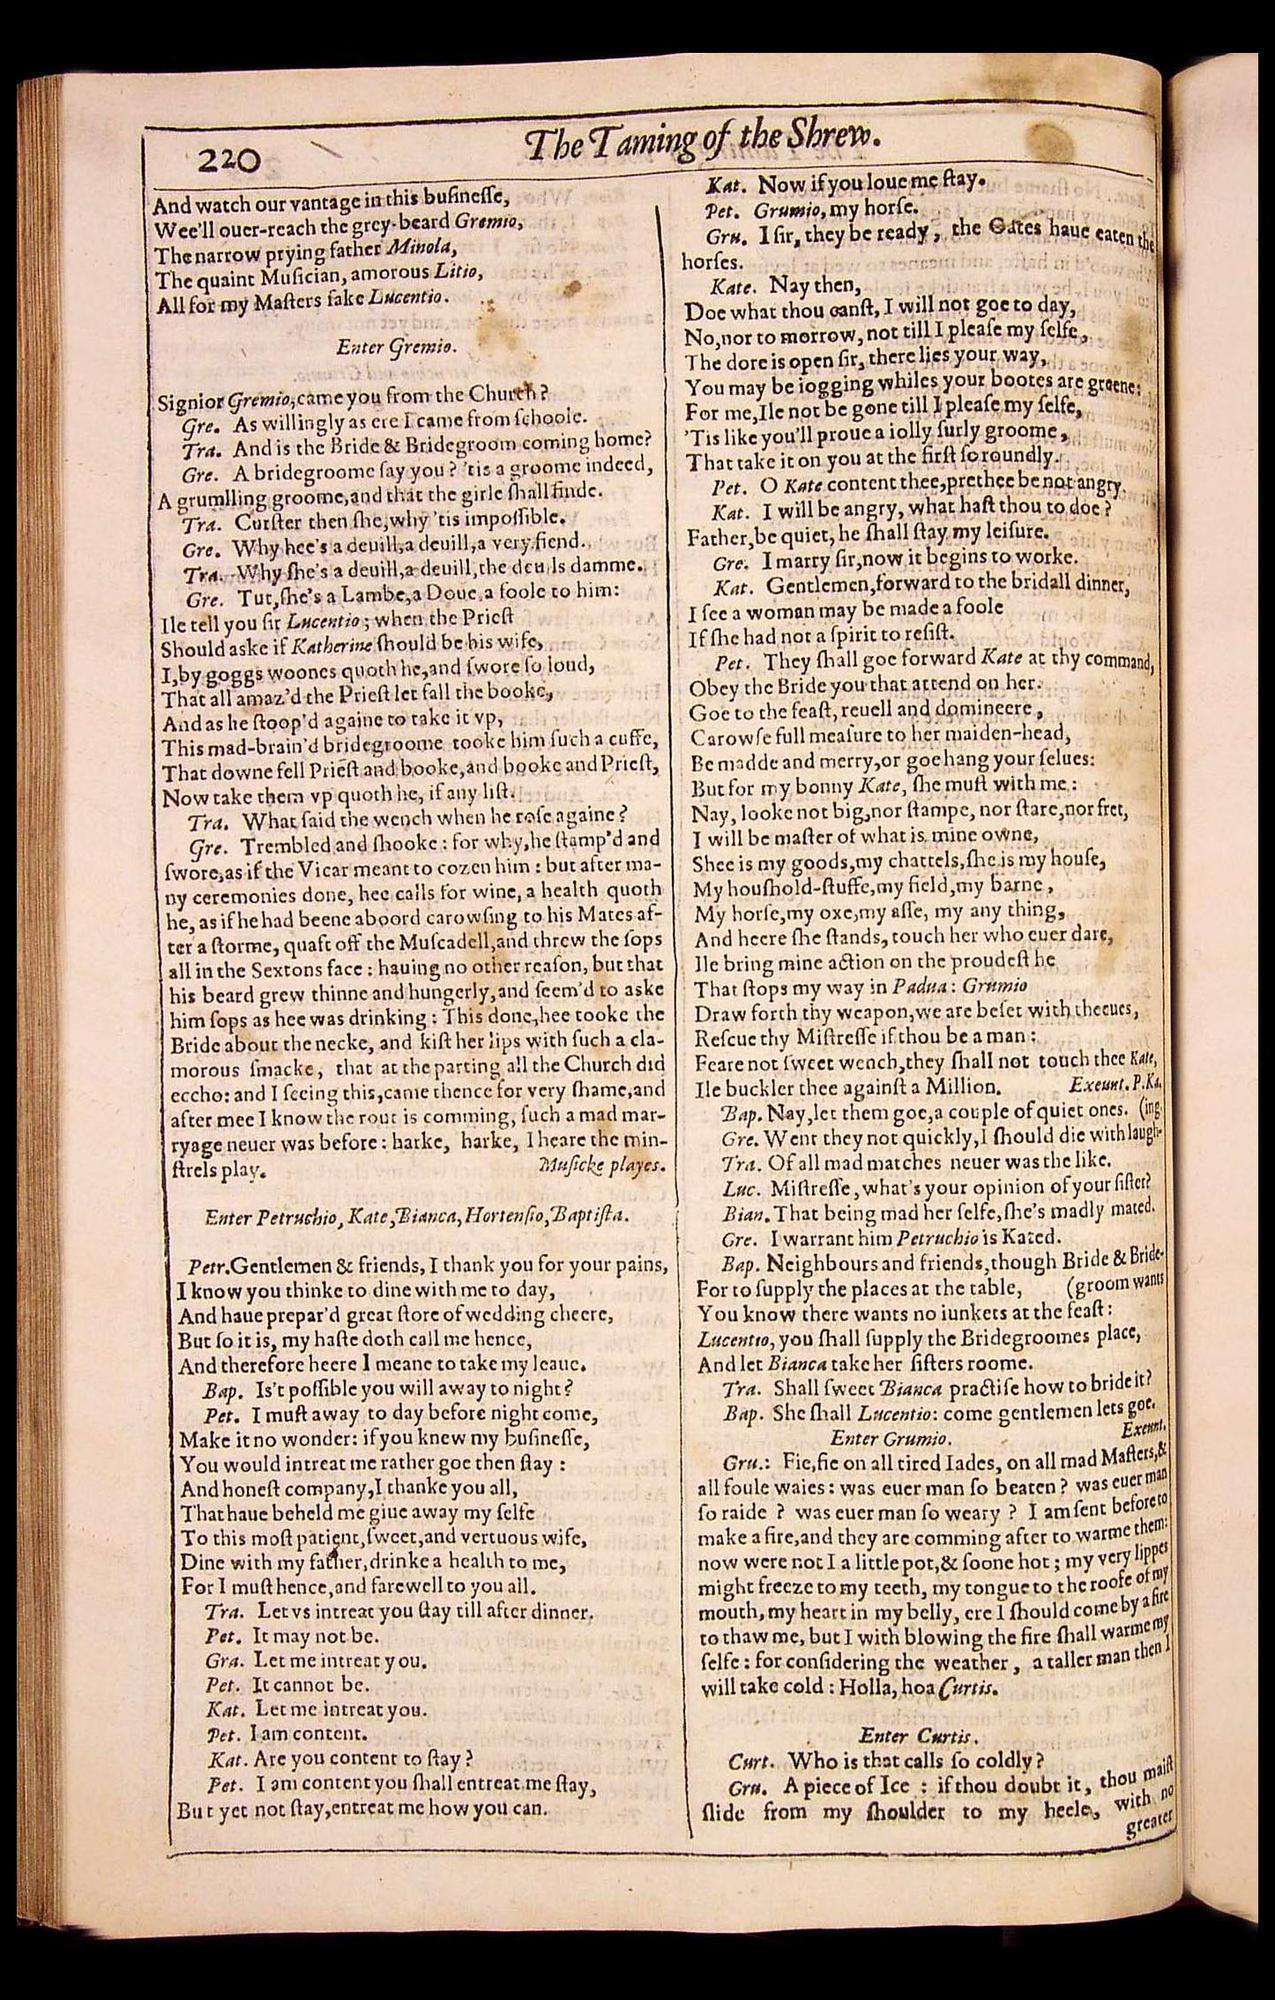 220
The Taming of the Shrew.
And watch our vantage in this busineſſe,
Wee'll ouer-reach the grey-beard Gremio,
The narrow prying father Minola,
The quaint Muſician, amorous Litio,
All for my Maſters ſake Lucentio.
Enter Gremio.
Signior Gremio, came you from the Church?
Gre. As willingly as ere I came from ſchoole.
Tra. And is the Bride & Bridegroom coming home?
Gre. A bridegroome ſay you? 'tis a groome indeed,
A grumlling groome, and that the girle ſhall finde.
Tra. Curſter then ſhe, why 'tis impoſſible.
Gre. Why hee's a deuill, a deuill, a very fiend.
Tra. Why ſhe's a deuill, a deuill, the deu ls damme.
Gre. Tut, ſhe's a Lambe, a Doue, a foole to him:
Ile tell you ſir Lucentio; when the Prieſt
Should aske if Katherine ſhould be his wife,
I, by goggs woones quoth he, and ſwore ſo loud,
That all amaz'd the Prieſt let fall the booke,
And as he ſtoop'd againe to take it vp,
This mad-brain'd bridegroome tooke him ſuch a cuffe,
That downe fell Prieſt and booke, and booke and Prieſt,
Now take them vp quoth he, if any liſt.
Tra. What ſaid the wench when he roſe againe?
Gre. Trembled and ſhooke: for why, he ſtamp'd and
ſwore, as if the Vicar meant to cozen him: but after ma-
ny ceremonies done, hee calls for wine, a health quoth
he, as if he had beene aboord carowſing to his Mates af-
ter a ſtorme, quaft off the Muſcadell, and threw the ſops
all in the Sextons face: hauing no other reaſon, but that
his beard grew thinne and hungerly, and ſeem'd to aske
him ſops as hee was drinking: This done, hee tooke the
Bride about the necke, and kiſt her lips with ſuch a cla-
morous ſmacke, that at the parting all the Church did
eccho: and I ſeeing this, came thence for very ſhame, and
after mee I know the rout is comming, ſuch a mad mar-
ryage neuer was before: harke, harke, I heare the min-
ſtrels play. Muſicke playes.
Enter Petruchio, Kate, Bianca, Hortenſio, Baptiſta.
Petr. Gentlemen & friends, I thank you for your pains,
I know you thinke to dine with me to day,
And haue prepar'd great ſtore of wedding cheere,
But ſo it is, my haſte doth call me hence,
And therefore heere I meane to take my leaue.
Bap. Is't poſſible you will away to night?
Pet. I muſt away to day before night come,
Make it no wonder: if you knew my buſineſſe,
You would intreat me rather goe then ſtay:
And honeſt company, I thanke you all,
That haue beheld me giue away my ſelfe
To this moſt patient, ſweet, and vertuous wife,
Dine with my father, drinke a health to me,
For I muſt hence, and farewell to you all.
Tra. Let vs intreat you ſtay till after dinner.
Pet. It may not be.
Gra. Let me intreat you.
Pet. It cannot be.
Kat. Let me intreat you.
Pet. I am content.
Kat. Are you content to ſtay?
Pet. I am content you ſhall entreat me ſtay,
But yet not ſtay, entreat me how you can.
Kat. Now if you loue me ſtay.
Pet. Grumio, my horſe.
Gru. I ſir, they be ready, the Oates haue eaten the
horſes.
Kate. Nay then,
Doe what thou canſt, I will not goe to day,
No, nor to morrow, not till I pleaſe my ſelfe,
The dore is open ſir, there lies your way,
You may be iogging whiles your bootes are greene:
For me, Ile not be gone till I pleaſe my ſelfe,
'Tis like you'll proue a iolly ſurly groome,
That take it on you at the firſt ſo roundly.
Pet. O Kate content thee, prethee be not angry.
Kat. I will be angry, what haſt thou to doe?
Father, be quiet, he ſhall ſtay my leiſure.
Gre. I marry ſir, now it begins to worke.
Kat. Gentlemen, forward to the bridall dinner,
I ſee a woman may be made a foole
If ſhe had not a ſpirit to reſiſt.
Pet. They ſhall goe forward Kate at thy command,
Obey the Bride you that attend on her.
Goe to the feaſt, reuell and domineere,
Carowſe full meaſure to her maiden-head,
Be madde and merry, or goe hang your ſelues:
But for my bonny Kate, ſhe muſt with me:
Nay, looke not big, nor ſtampe, nor ſtare, nor fret,
I will be maſter of what is mine owne,
Shee is my goods, my chattels, ſhe is my houſe,
My houſhold-ſtuffe, my field, my barne,
My horſe, my oxe, my aſſe, my any thing,
And heere ſhe ſtands, touch her who euer dare,
Ile bring mine action on the proudeſt he
That ſtops my way in Padua: Grumio
Draw forth thy weapon, we are beſet with theeues,
Reſcue thy Miſtreſſe if thou be a man:
Feare not ſweet wench, they ſhall not touch thee Kate,
Ile buckler thee againſt a Million. Exeunt. P. Ka.
Bap. Nay, let them goe, a couple of quiet ones. (ing.
Gre. Went they not quickly, I ſhould die with laugh-
Tra. Of all mad matches neuer was the like.
Luc. Miſtreſſe, what's your opinion of your ſiſter?
Bian. That being mad her ſelfe, ſhe's madly mated.
Gre. I warrant him Petruchio is Kated.
Bap. Neighbours and friends, though Bride & Bride-
For to ſupply the places at the table, (groom wants
You know there wants no iunkets at the feaſt:
Lucentio, you ſhall ſupply the Bridegroomes place,
And let Bianca take her ſiſters roome.
Tra. Shall ſweet Bianca practiſe how to bride it?
Bap. She ſhall Lucentio: come gentlemen lets goe.
Enter Grumio. Exeunt.
Gru.: Fie, fie on all tired Iades, on all mad Maſters, &
all foule waies: was euer man ſo beaten? was euer man
ſo raide? was euer man ſo weary? I am ſent before to
make a fire, and they are comming after to warme them:
now were not I a little pot, & ſoone hot; my very lippes
might freeze to my teeth, my tongue to the roofe of my
mouth, my heart in my belly, ere I ſhould come by a fire
to thaw me, but I with blowing the fire ſhall warme my
ſelfe: for conſidering the weather, a taller man then I
will take cold: Holla, hoa Curtis.
Enter Curtis.
Curt. Who is that calls ſo coldly?
Gru. A piece of Ice: if thou doubt it, thou maiſt
ſlide from my ſhoulder to my heele, with no
greater